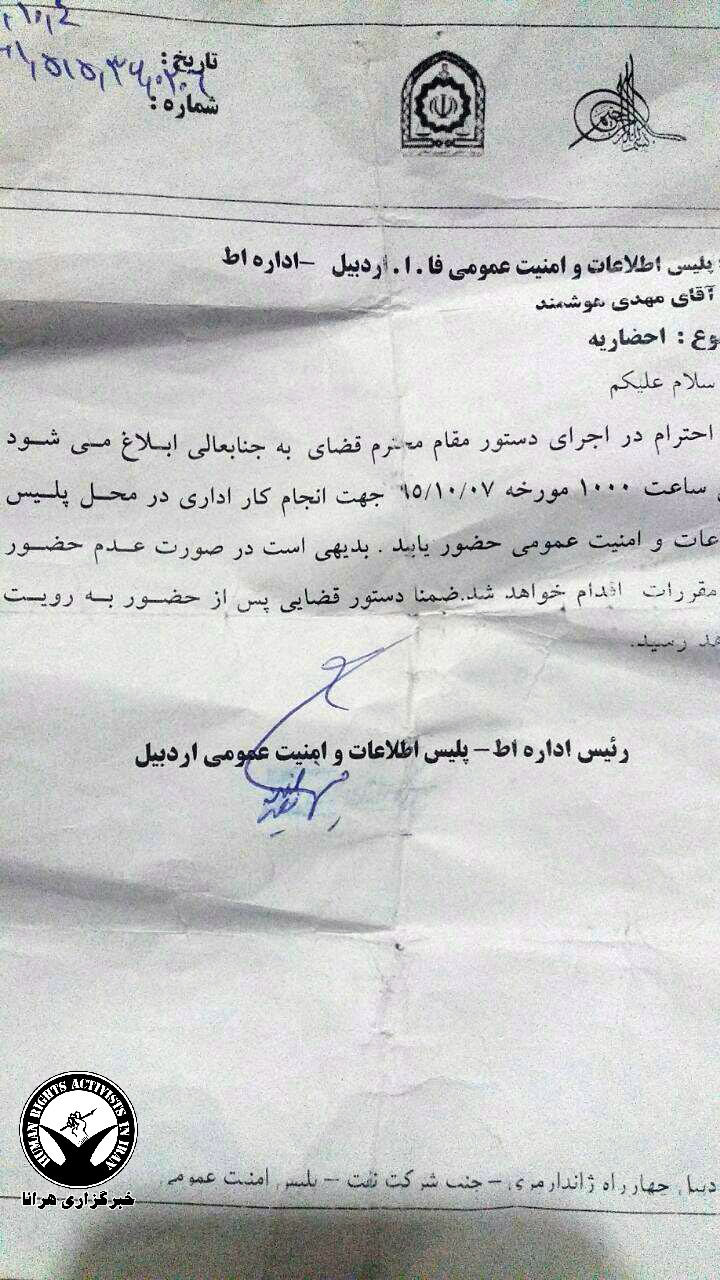 تاریخ :
شماره :
پلیس اطلاعات و امنیت عمومی فا . ا . اردبیل – اداره اط
آقای مهدی هوشمند
وع : احضاریه
سلام علیکم
احترام در اجرای دستور مقام محترم قضای به جنابعالی ابلاغ می شود
ساعت ۱۰۰۰ مورخه ۹۵/۱۰/۰۷ جهت انجام کار اداری در محل پلیس
عات و امنیت عمومی حضور یابید . بدیهی است در صورت عدم حضور
مقررات اقدام خواهد شد.ضمنا دستور قضایی پس از حضور به رویت
هد رسید.
رئیس اداره اط – پلیس اطلاعات و امنیت عمومی اردبیل
HUMAN RIGHTS ACTIVISTS IN IRAN
خبرگزاری هرانا
چهار راه ژاندارمری – جنب شرکت نفت – پلیس امنیت عمومی